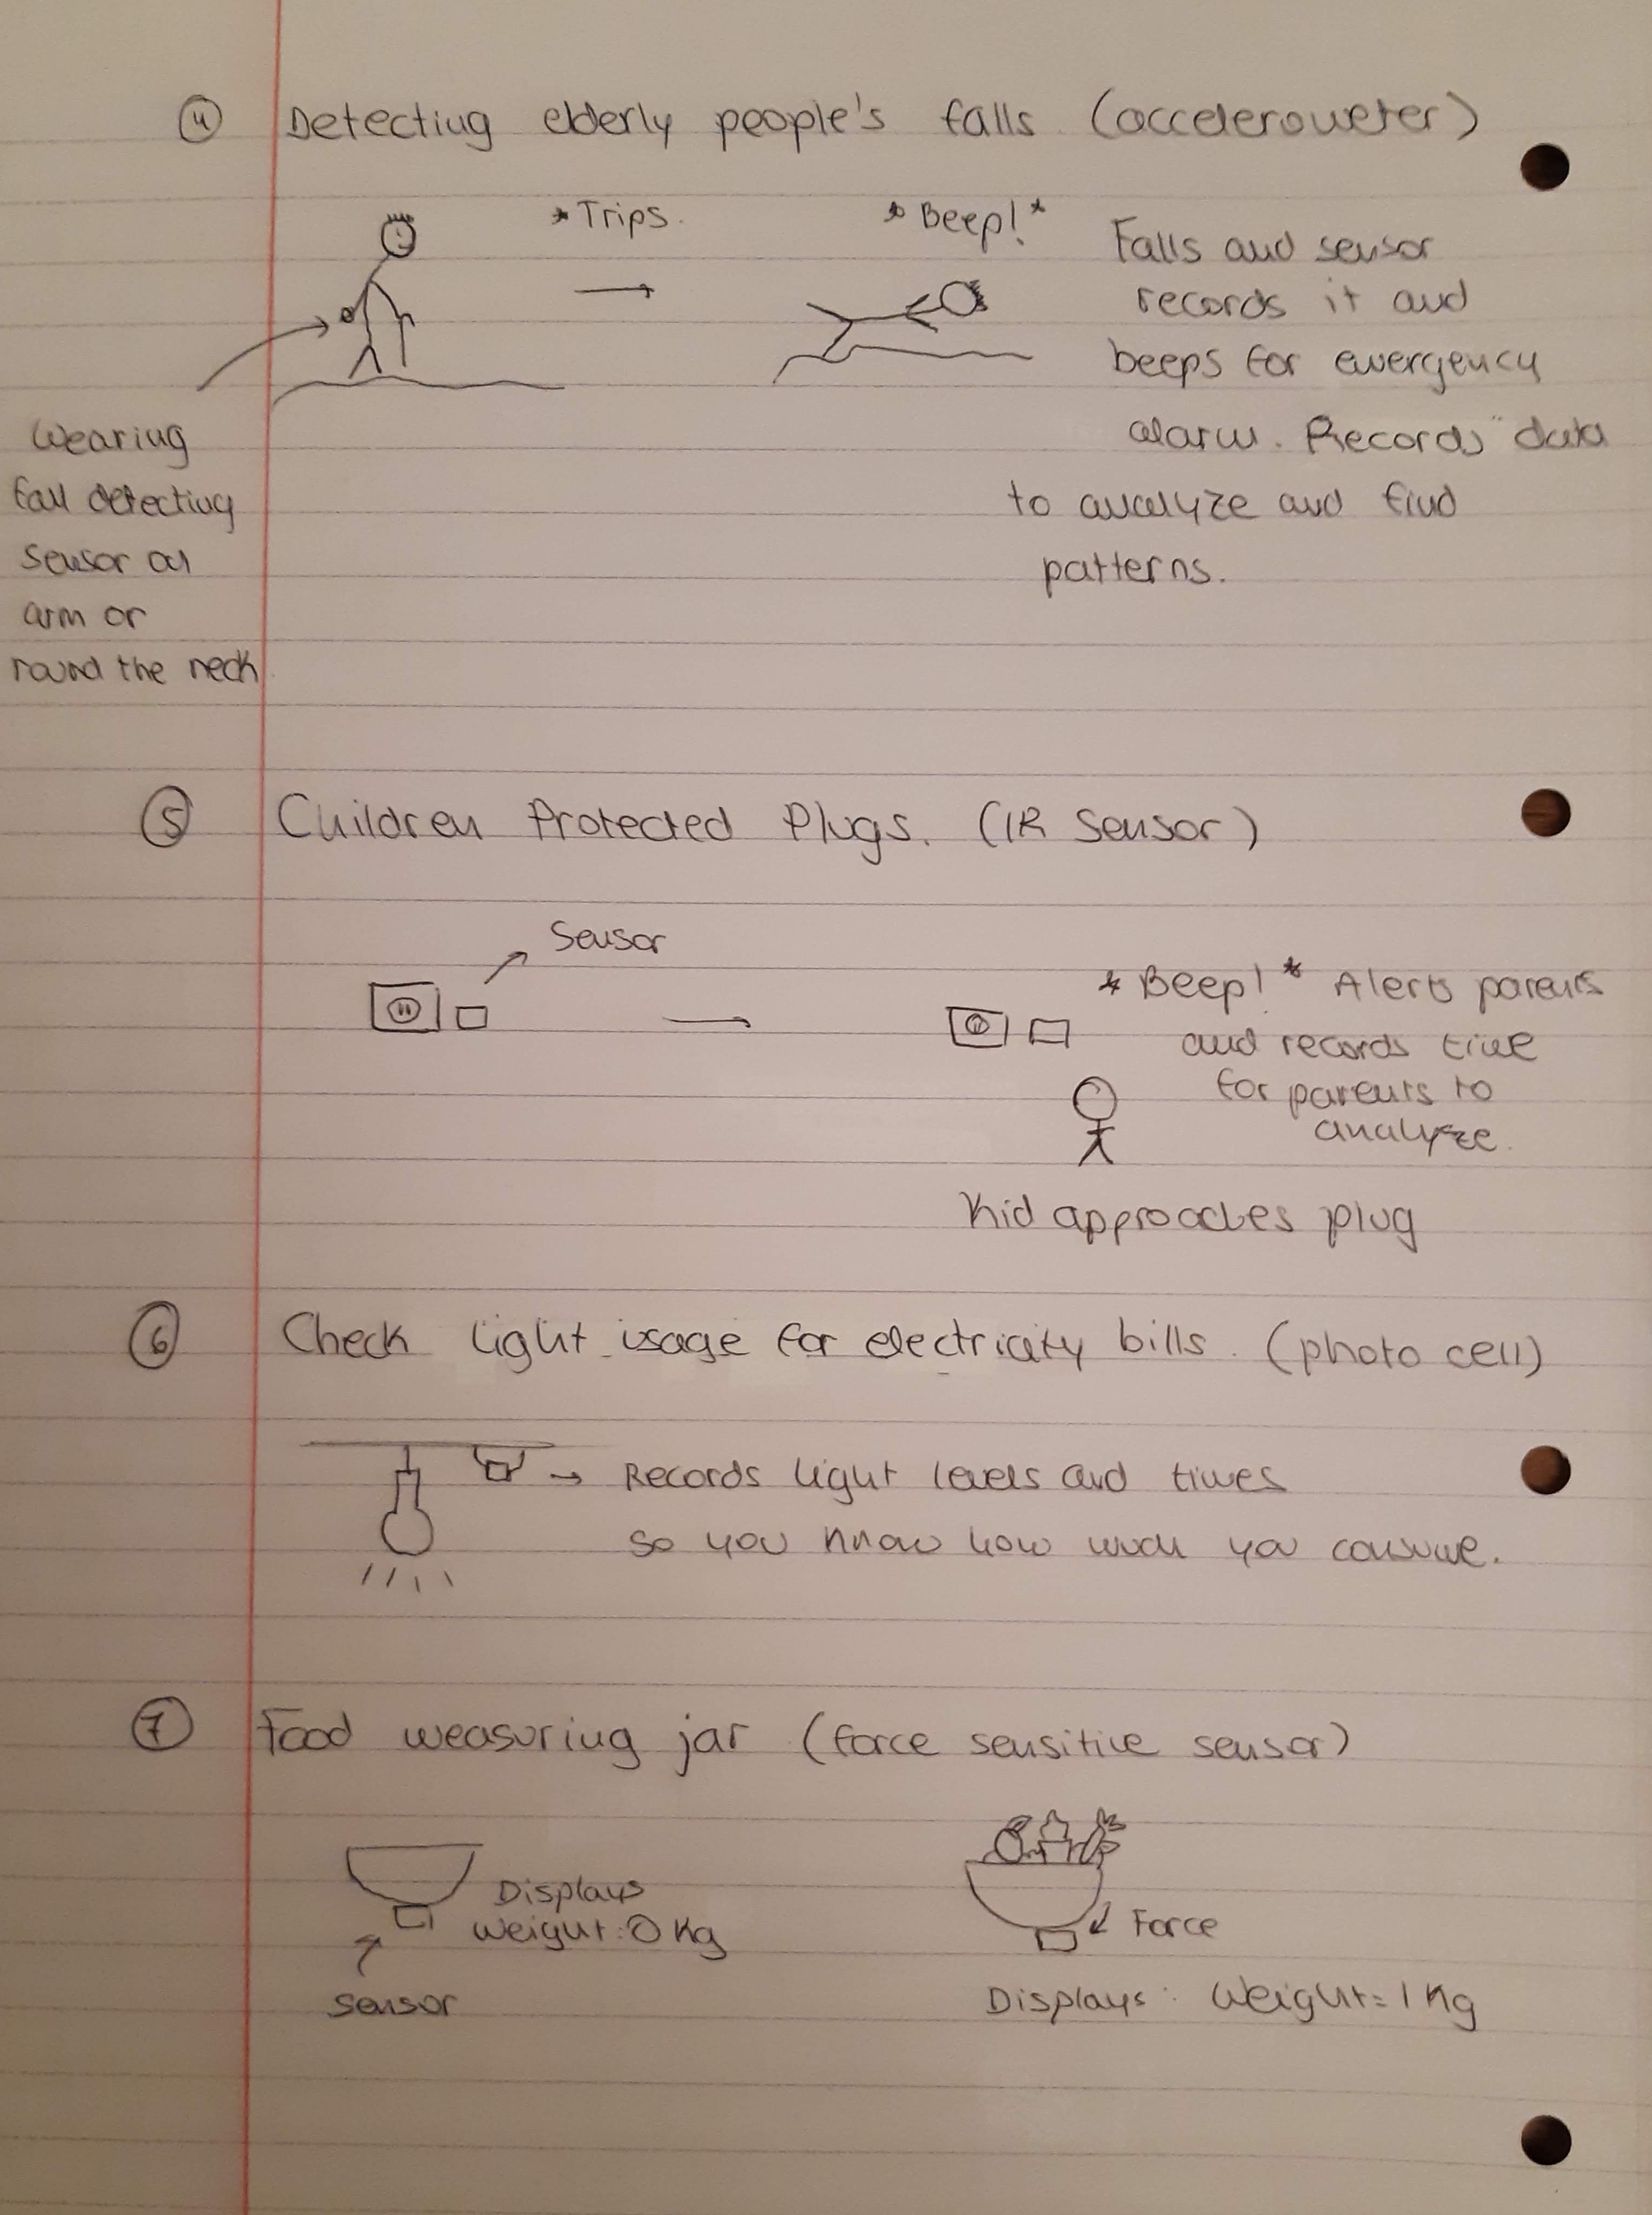 4 Detecting elderly people's falls (accelerometer)
*Trips.
*Beep!*
Falls and sensor
records it and
beeps for emergency
alarm. Records data
to analyze and find
patterns.
Wearing
fall detecting
sensor on
arm or
round the neck
5 Children Protected Plugs. (IR Sensor)
Sensor
*Beep!* Alerts parents
and records time
for parents to
analyze.
Kid approaches plug
6 Check light usage for electricity bills. (photo cell)
→ Records light levels and times
so you know how much you consume.
7 Food measuring jar (force sensitive sensor)
Displays
Weight: 0 Kg
Sensor
Force
Displays: Weight = 1 Kg